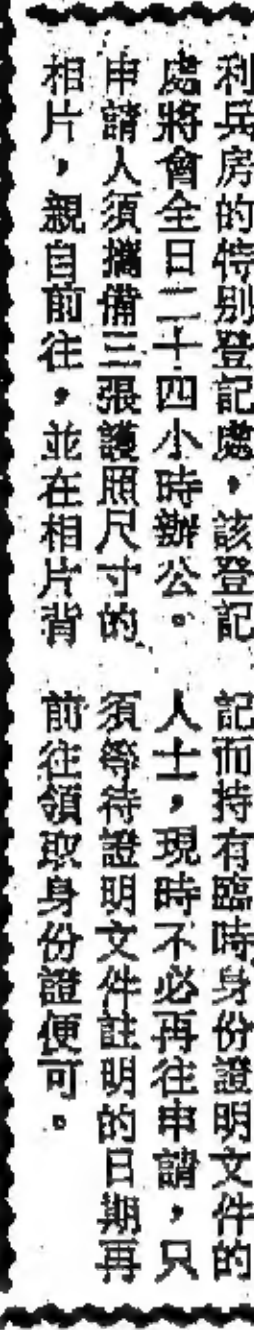 利兵房的特別登記處，該登記
處將會全日二十四小時辦公。
申請人須攜備三張護照尺寸的
相片，親自前往，並在相片背
記而持有臨時身份證明文件的
人士，現時不必再往申請，只
須等待證明文件註明的日期再
前往領取身份證便可。